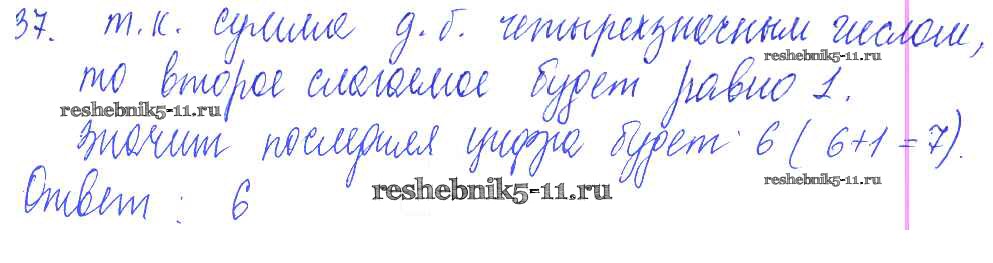 37. т.к. сумма д.б. четырехзначным числом,
reshebnik5-11.ru
то второе слагаемое будет равно 1.
reshebnik5-11.ru
Значит последняя цифра будет 6 (6+1=7).
reshebnik5-11.ru
Ответ: 6
reshebnik5-11.ru